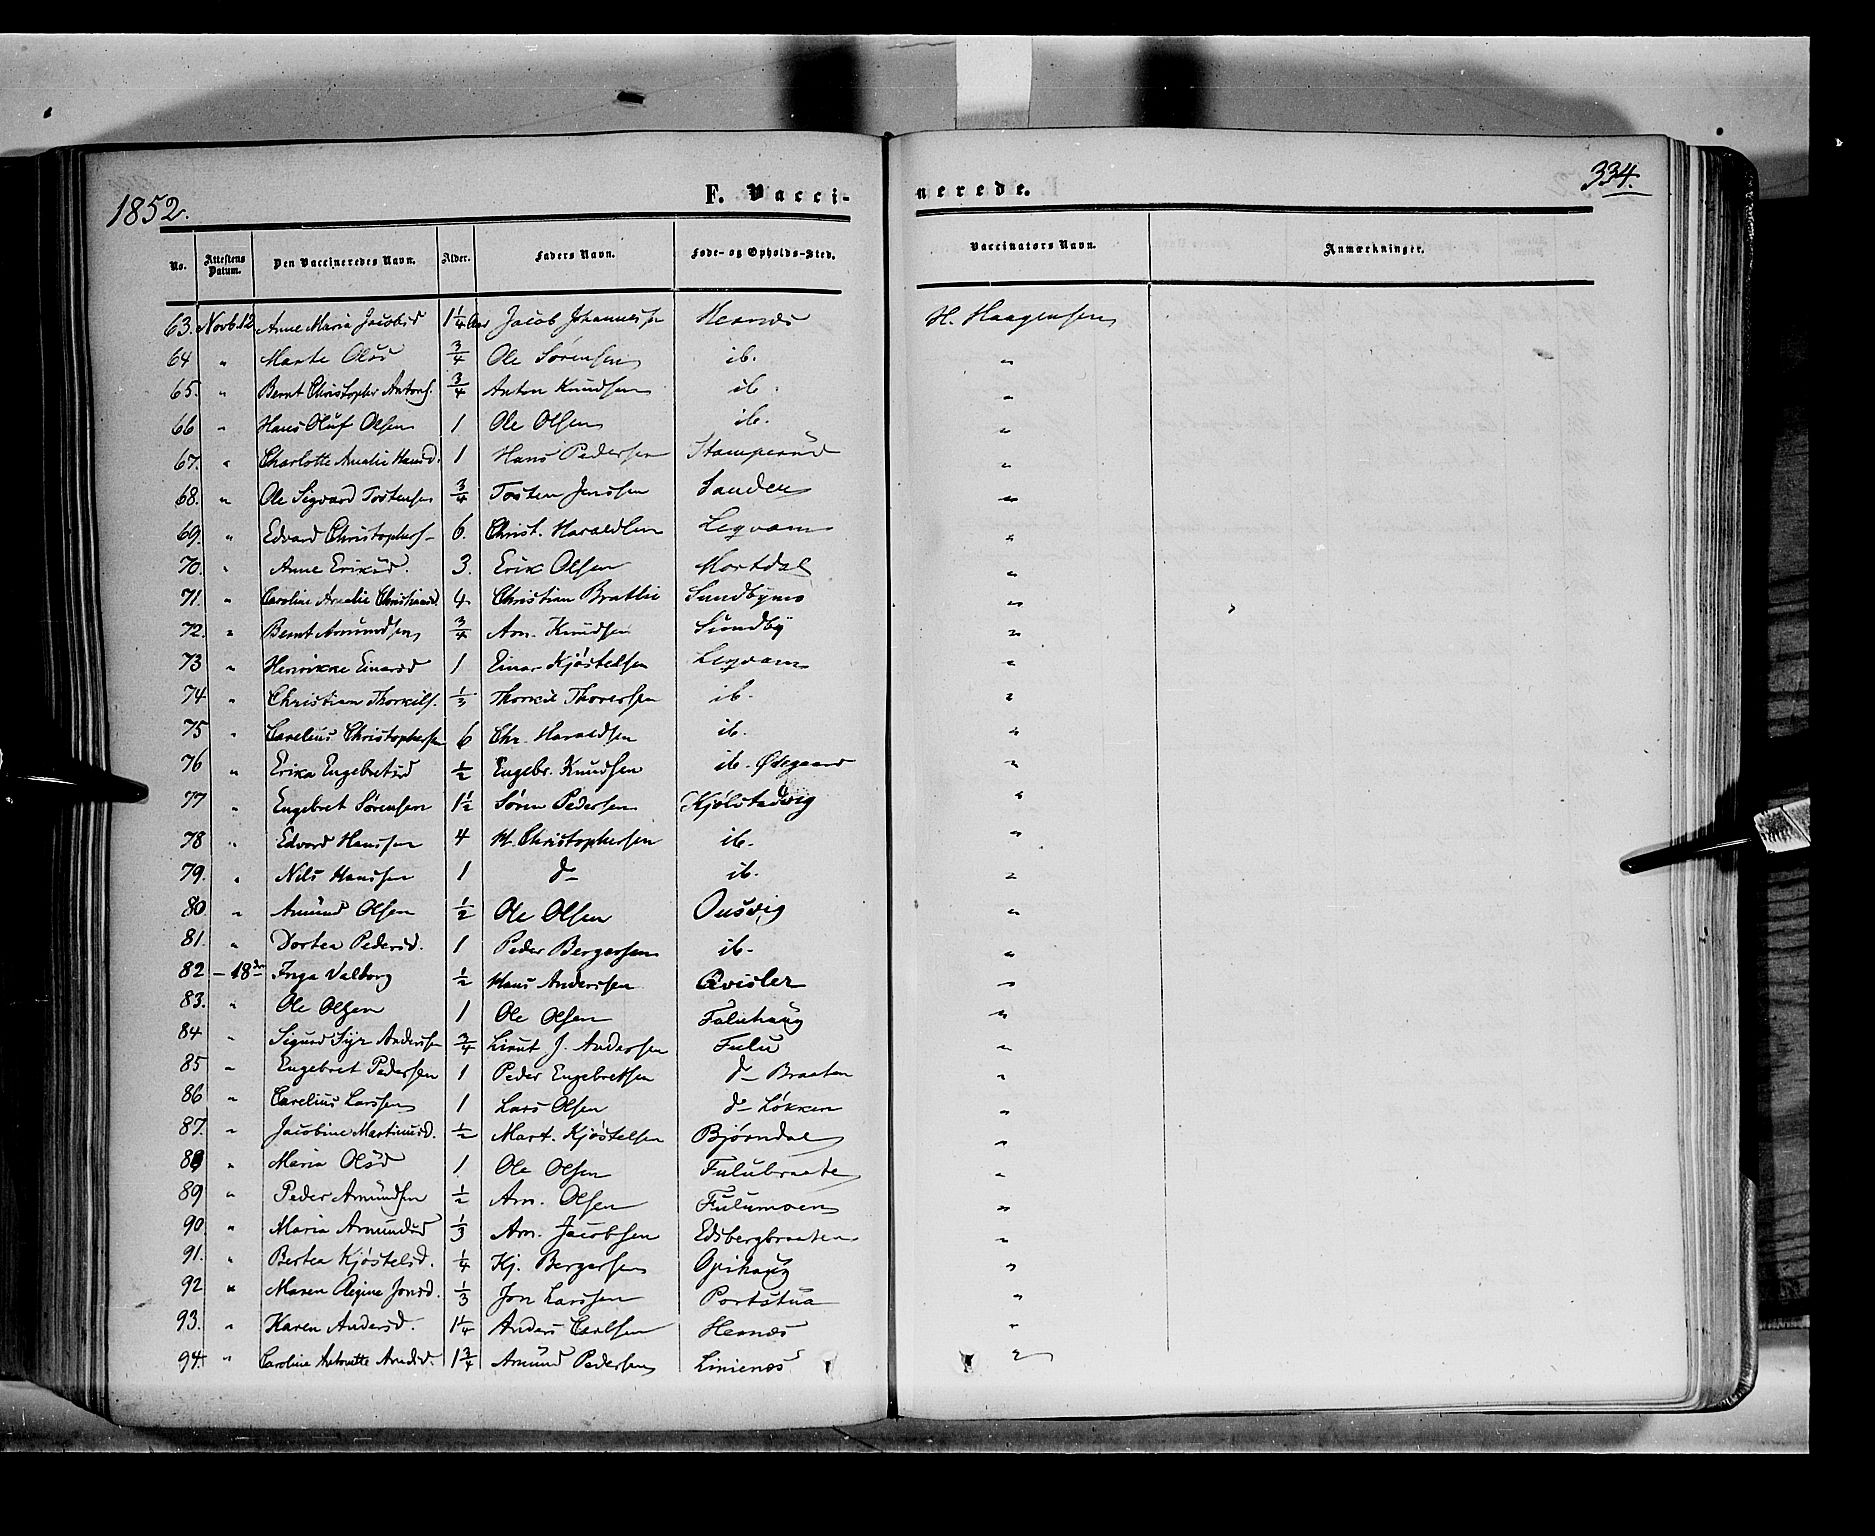 1852.
F. Vacci-
nerede.
334.
No. Attestens Datum. Den Vaccineredes Navn. Alder. Faders Navn. Føde- og Opholds-Sted. Vaccinators Navn. Anmærkninger.
63. Novb. 12 Anne Maria Jacobsd 1 1/4 Aar Jacob Johannessen Hernæs H. Haagensen
64 " Marte Olsd 3/4 Ole Sørensen ib. "
65. " Bernt Christopher Antons. 3/4 Anton Knudsen ib. "
66 " Hans Oluf Olsen 1 Ole Olsen ib. "
67. " Charlotte Amalie Hansd. 1 Hans Pedersen Stamperud "
68. " Ole Sigvard Tostensen 3/4 Tosten Jenssen Sanden "
69. " Edvard Christophers- 6. Christ. Haraldsen Legvam "
70. " Anne Eriksd. 3. Erik Olsen Mortdal "
71. " Caroline Amalie Christiansd. 4. Christian Bratlie Sundbynes "
72. " Bernt Amundsen 3/4 Am. Knudsen Sundby "
73 " Henrikke Einarsd 1 Einar Kjøstelsen Legvam "
74 " Christian Thorkils. 1/3 Thorkil Thoversen ib. "
75 " Carelius Christophersen 6 Chr. Haraldsen ib. "
76 " Erika Engebretsd 1/2 Engebr. Knudsen ib. Ødegaard "
77 " Engebret Sørensen 1 1/2 Søren Pedersen Kjølstadvig "
78 " Edvard Hanssen 4 H. Christophersen ib. "
79. " Nils Hanssen 1 d- ib. "
80 " Amund Olsen 1/2 Ole Olsen Ousvig "
81. " Dortea Pedersd. 1 Peder Bergersen ib. "
82 - 18de Inga Valborg 1/2 Hans Anderssen Qvisler "
83. " Ole Olsen 1 Ole Olsen Fuluhaug "
84 " Sigurd Syr Anderssen 3/4 Lieut J. Anderssen Fulu "
85 " Engebret Pedersen 1 Peder Engebretsen d- Braaten "
86 " Carelius Larssen 1 Lars Olsen d- Løkken "
87. " Jacobine Martinusd. 1/2 Mart. Kjøstelsen Bjørndal "
88 " Maria Olsd 1 Ole Olsen Fulubraate "
89 " Peder Amundsen 1/2 Am. Olsen Fulumoen "
90. " Maria Amundsd 1/3 Am. Jacobsen Edsbergbraaten "
91. " Bertea Kjøstelsd. 1/4 Kj. Bergersen Opihaug "
92 " Maren Regine Jonsd. 1/3 Jon Larssen Portstua "
93. " Karen Andersd. 1 1/4 Anders Carlsen Hernæs "
94. " Caroline Antonette Amdsd. 1 3/4 Amund Pedersen Linienæs "